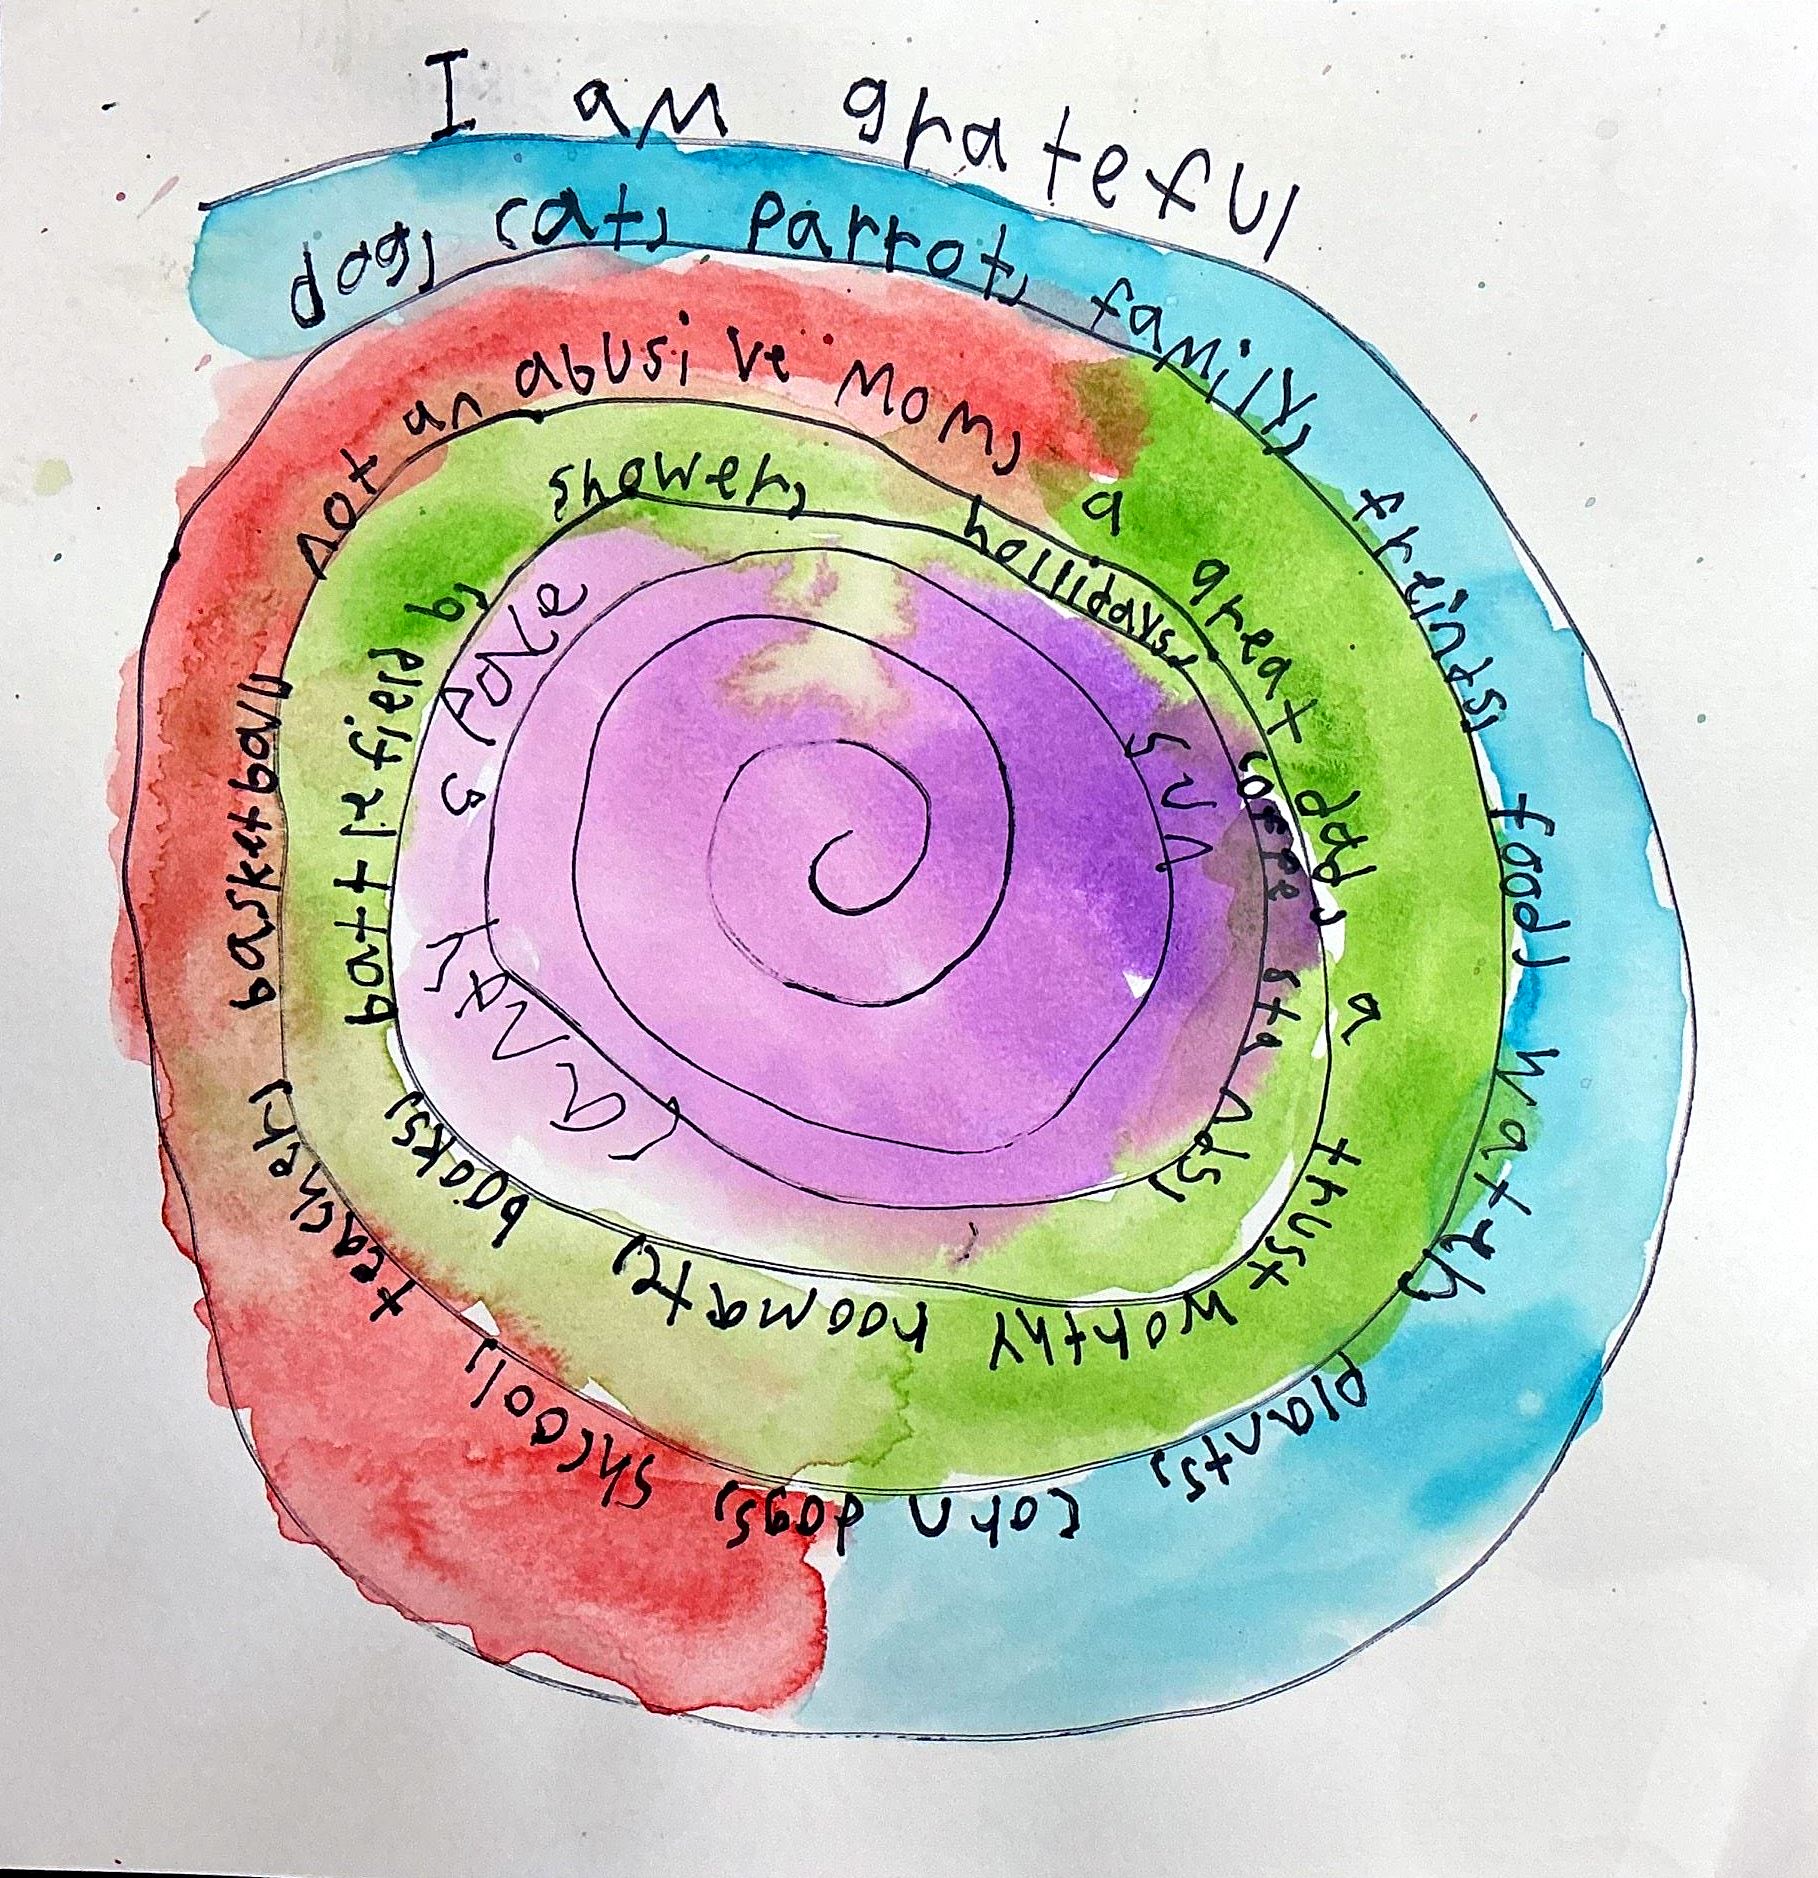 I am grateful
dog, cat, parrot, family, freints, food, water, plants, corn dogs, shcool, teacher, basketball
not an abusive mom, a great dad, a trust worthy roomate, books, battle field b,
shower, hollidays, stands,
sun